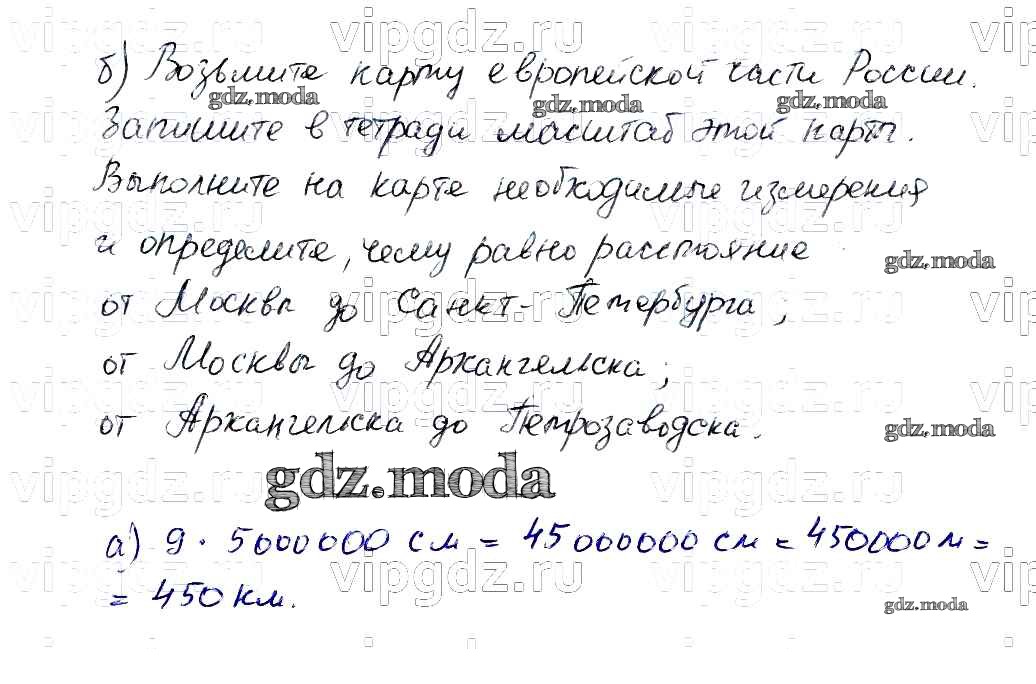 б) Возьмите карту европейской части России.
Запишите в тетради масштаб этой карты.
Выполните на карте необходимые измерения
и определите, чему равно расстояние
от Москвы до Санкт-Петербурга;
от Москвы до Архангельска;
от Архангельска до Петрозаводска.
gdz.moda
а) 9 · 5000000 см = 45000000 см = 450000 м =
= 450 км.
gdz.moda
vipgdz.ru